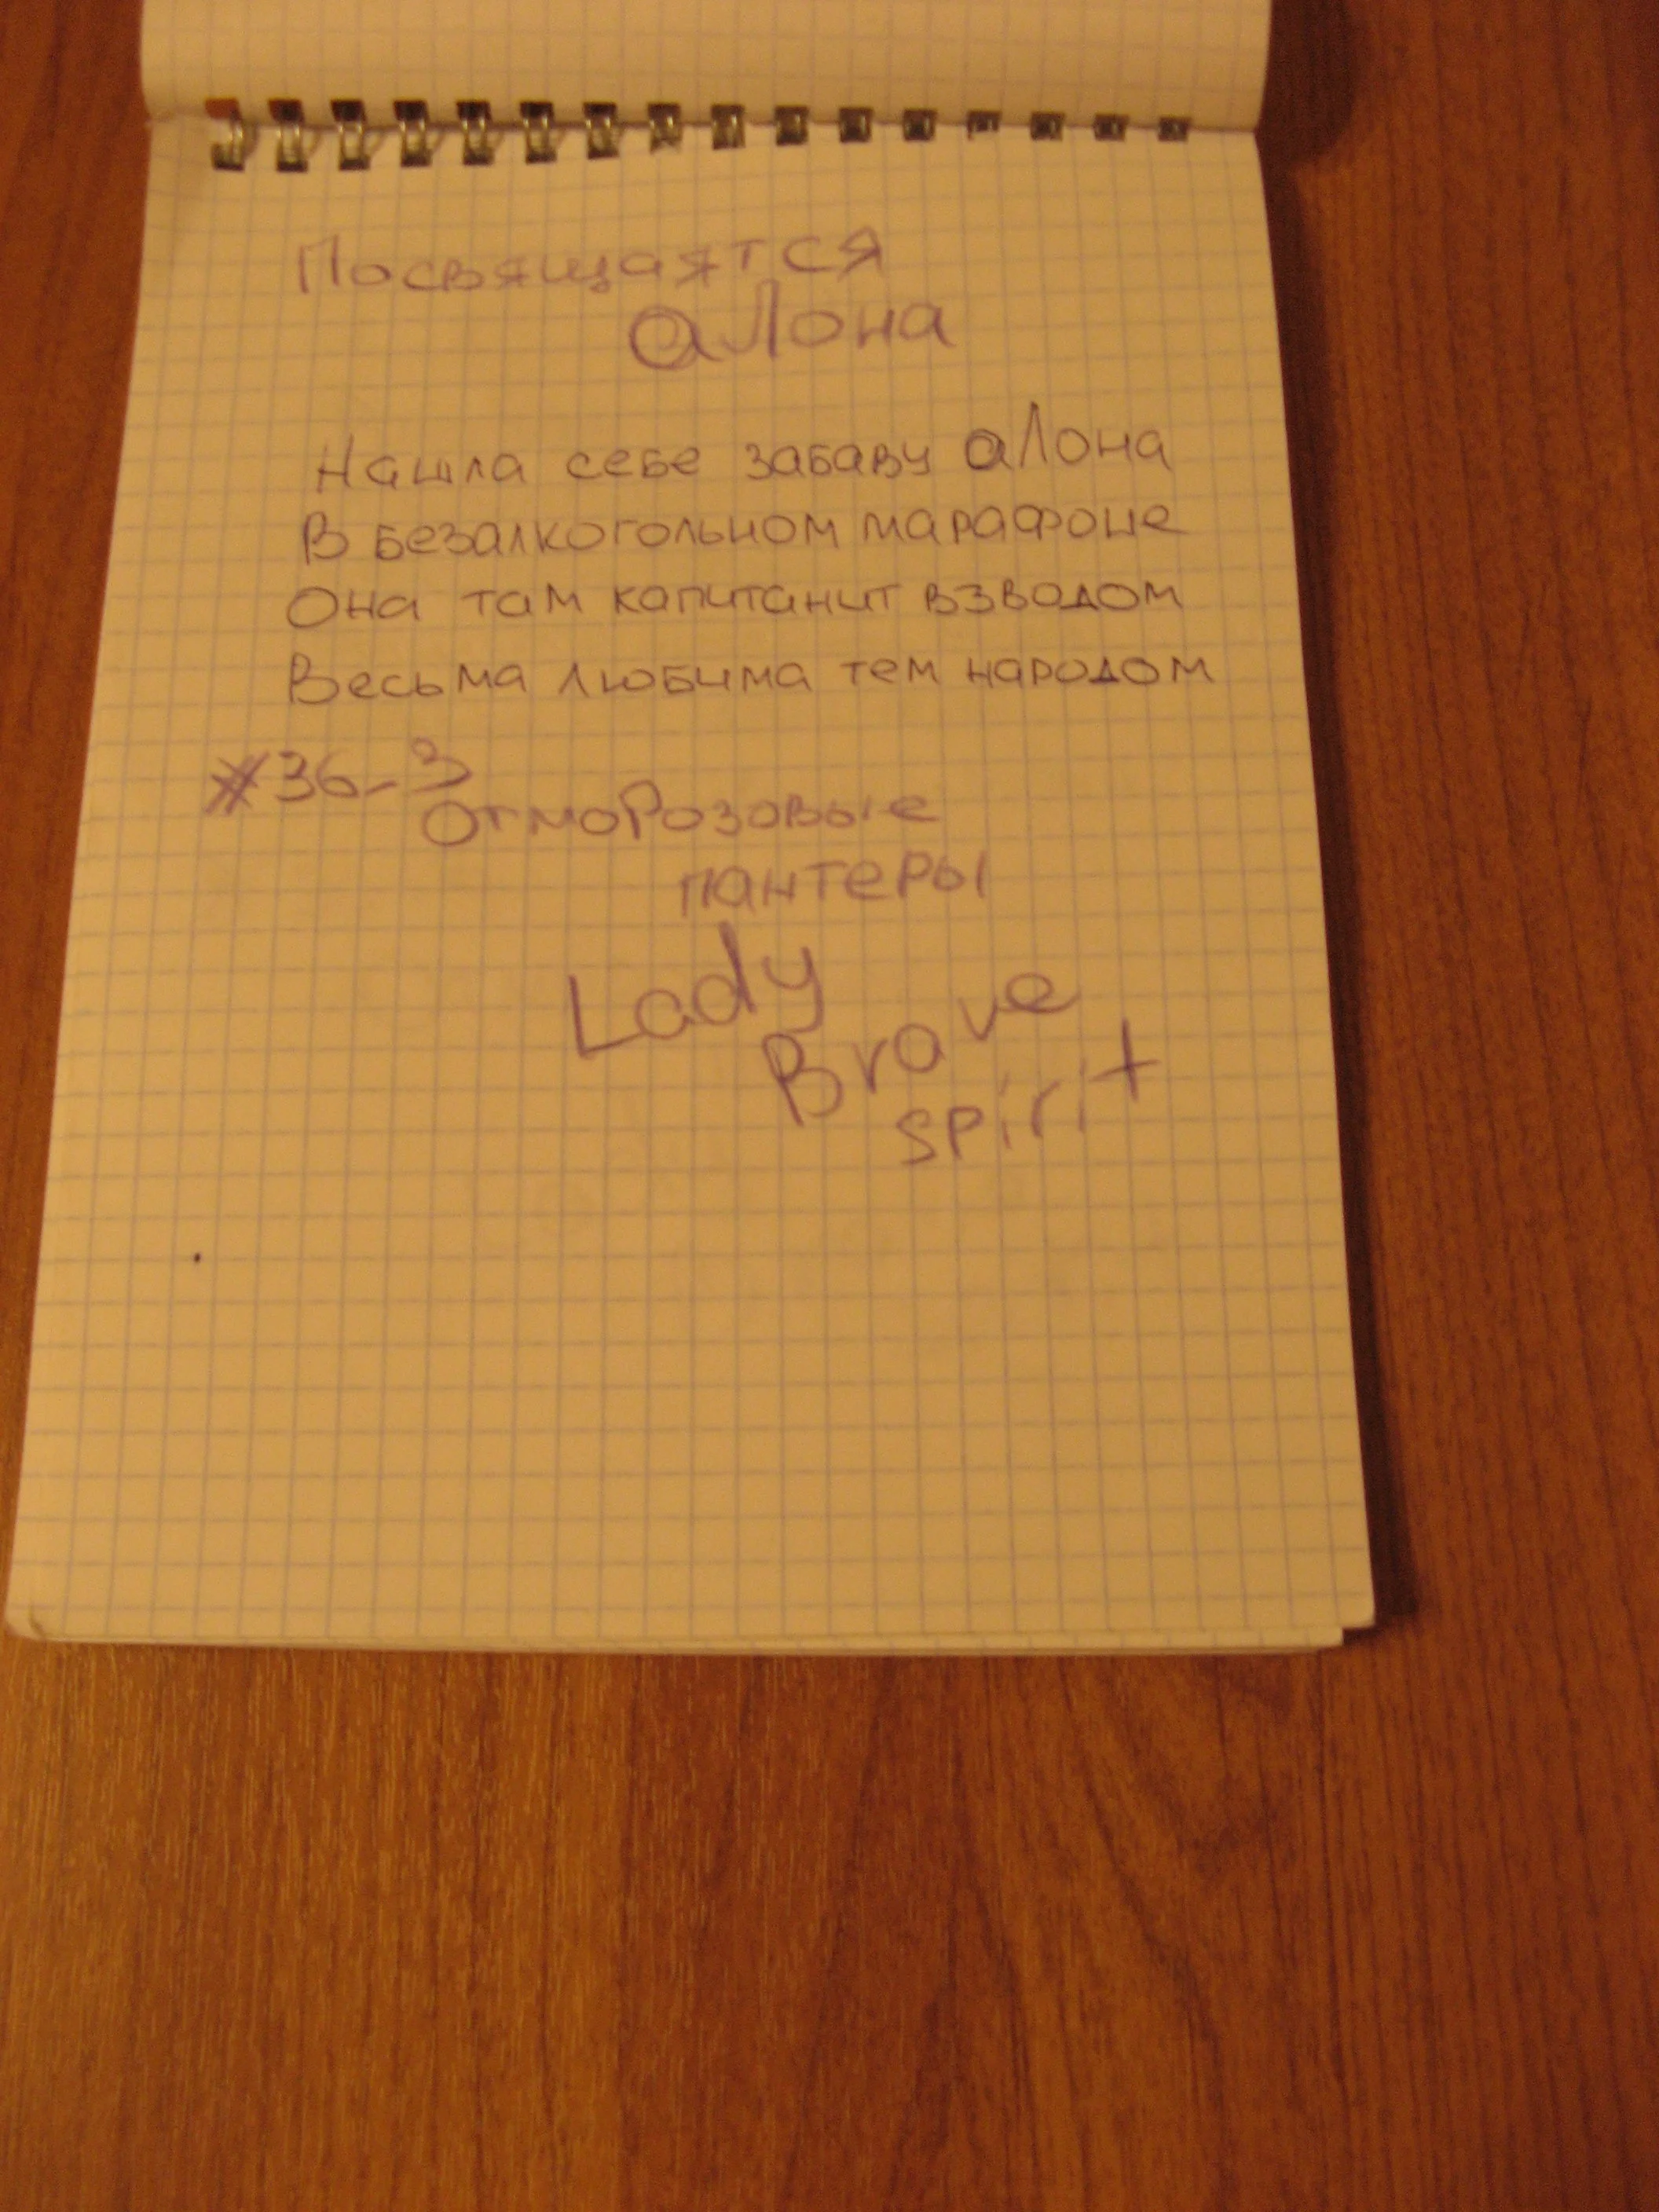 Посвящаятся
аЛона
Нашла себе забаву аЛона
В безалкогольном марафоне
Она там капитанит взводом
Весьма любима тем народом
#36_3
ОтмоРозовые
пантеры
Lady
Brave
spirit